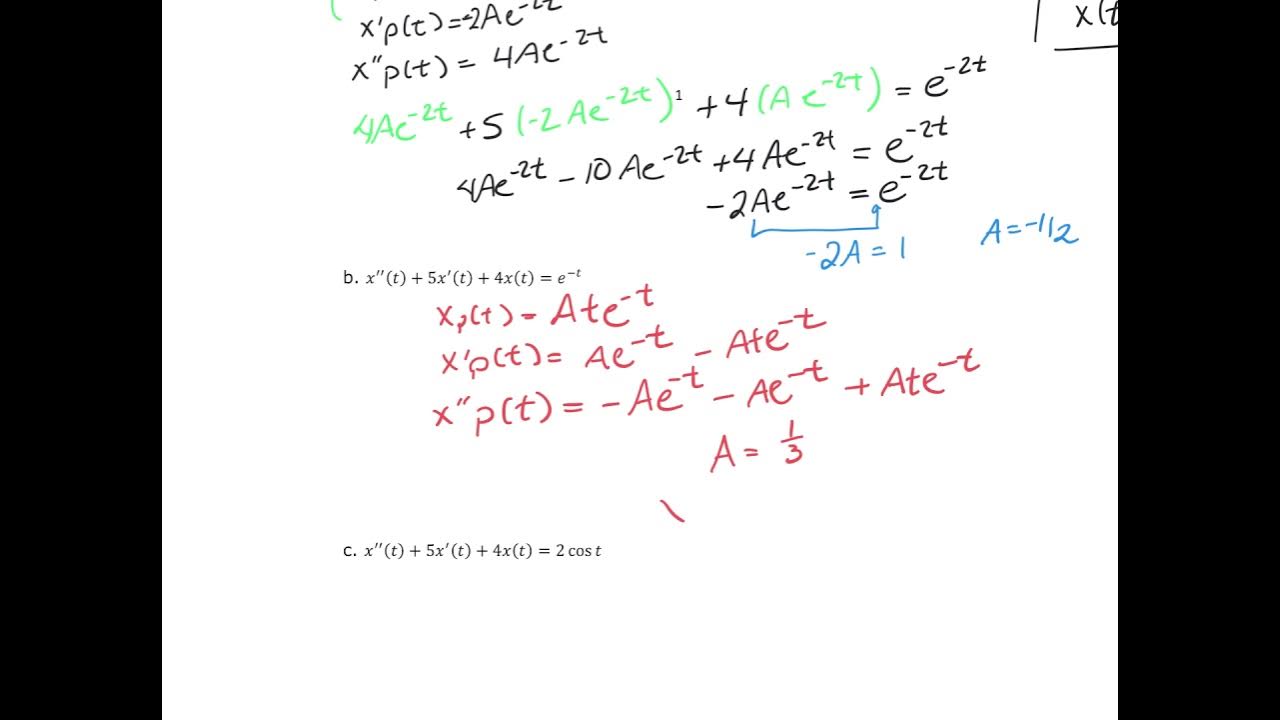 x'p(t)=-2Ae^-2t
x(t
x"p(t) = 4Ae^-2t
4Ae^-2t +5 (-2Ae^-2t)^1 +4 (Ae^-2t) = e^-2t
4Ae^-2t - 10Ae^-2t +4Ae^-2t = e^-2t
-2Ae^-2t = e^-2t
-2A = 1
A = -1/2
b. x′′(t) + 5x′(t) + 4x(t) = e^−t
xp(t) = Ate^-t
x'p(t) = Ae^-t - Ate^-t
x"p(t) = -Ae^-t - Ae^-t + Ate^-t
A = 1/3
c. x′′(t) + 5x′(t) + 4x(t) = 2 cos t